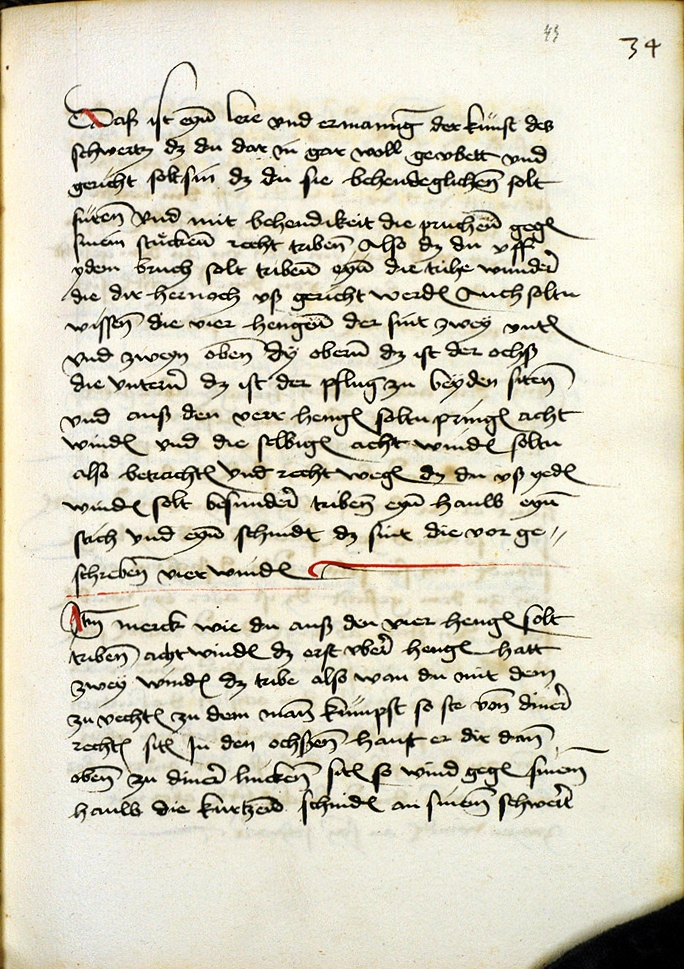 43
34
Daß ist eyn lere vnd ermanung der kunst des
schwertz dz du dar in gar woll geubett vnd
gericht solt sin dz du sie behendeglichen solt
füren vnd mit behendikeit die pruchen gegen
sinem stücken recht triben Also dz du vff
ydem bruch solt triben eyn die winder
die dir hernoch vß gericht werden Auch soltu
wissen die vier hengen der sint zwey vnten
vnd zweyn oben Dy obern dz ist der ochß
die vntern dz ist der pflug zu beyden siten
vnd auß den verr hengen soltu pringen acht
winden vnd die selbigen acht winden soltu
also betrachten vnd recht wegen dz du vß yeden
winden solt besunder triben eyn hauw eyn
stich vnd eyn schnidt dz sint die vor ge //
schreben vier winden
Itm merck wie du auß den vier hengen solt
triben acht winden dz erst vber hengen hatt
zwey winden dz tribe also wan du mit dem
zu vechten zu dem man kumpst so ste von diner
rechten siten In den ochßen hauwt er dir dan
oben zu diner lincken siten so wind gegen sinem
hauw die kurtzen schniden an sinem schwert